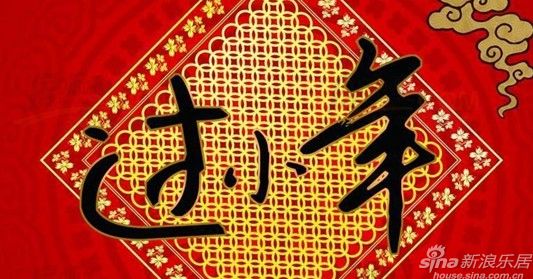 过小年
sina新浪乐居
house.sina.com.cn